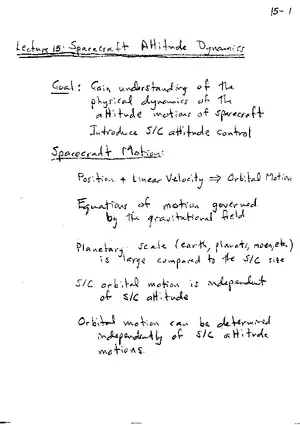 15-1
Lecture 15: Spacecraft Attitude Dynamics
Goal: Gain understanding of the
physical dynamics of the
attitude motions of spacecraft
Introduce S/C attitude control
Spacecraft Motion:
Position + Linear Velocity ⇒ Orbital Motion
Equations of motion governed
by the gravitational field
Planetary scale (earth, planets, moon, etc.)
is large compared to the S/C size
S/C orbital motion is independent
of S/C attitude
Orbital motion can be determined
independently of S/C attitude
motions.